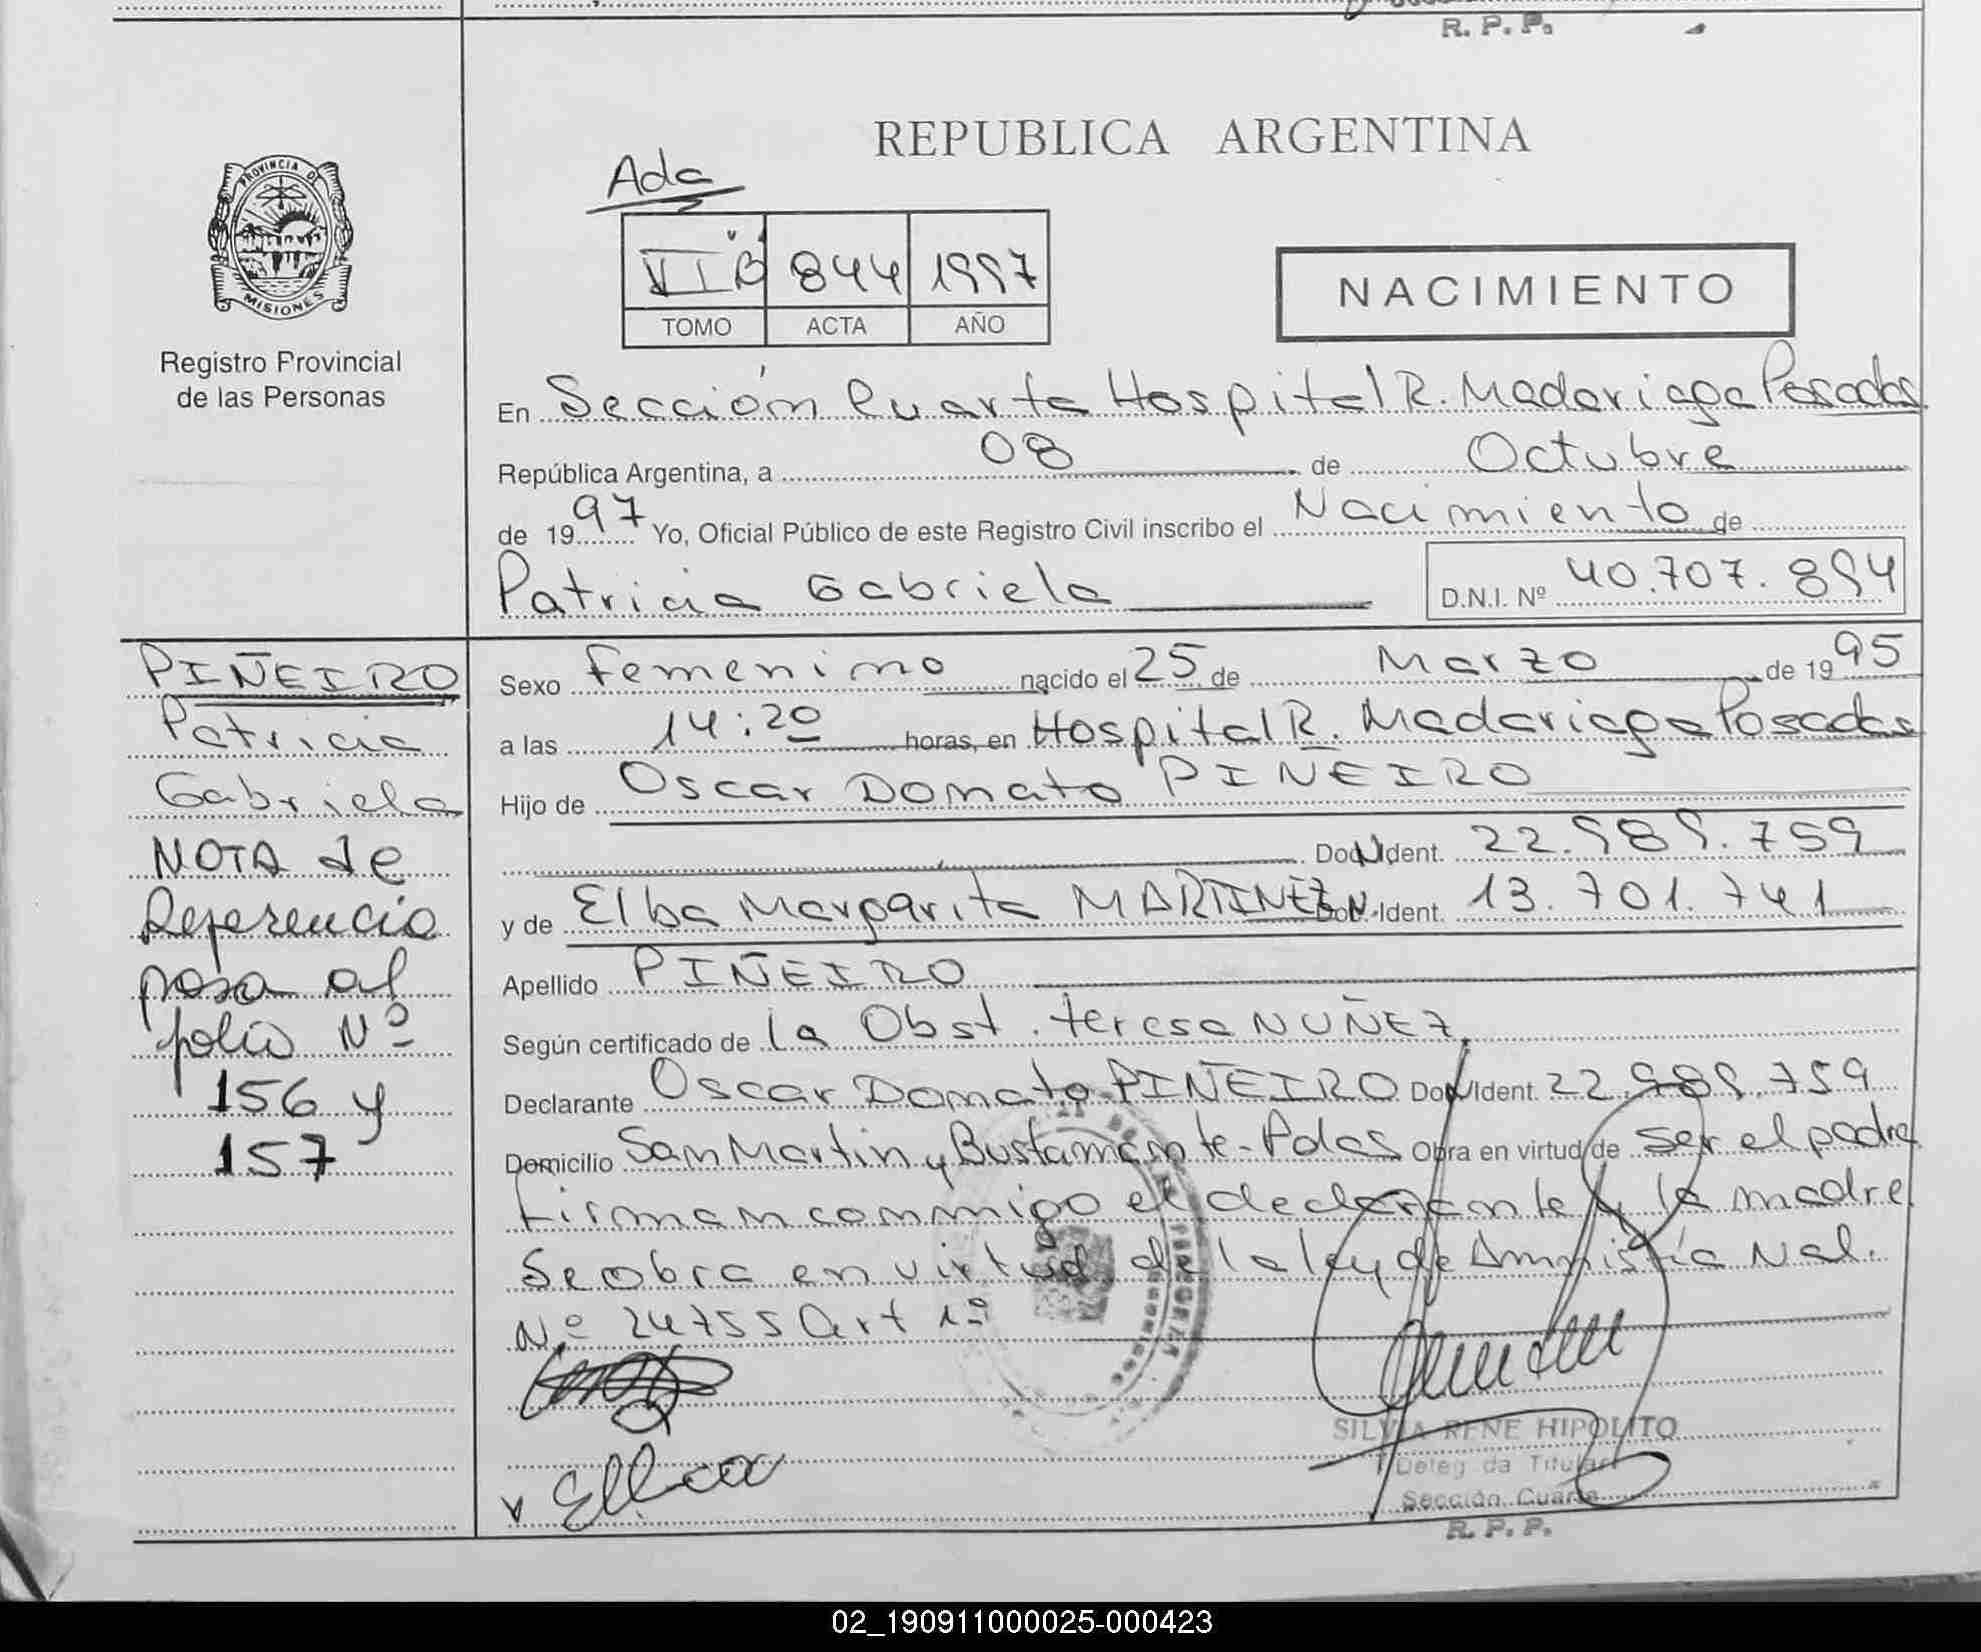 R. P. P.
REPUBLICA ARGENTINA
Ada
PROVINCIA DE
MISIONES
VI B 844 1997
TOMO ACTA AÑO
NACIMIENTO
Registro Provincial
de las Personas
En Sección Cuarta Hospital R. Madariaga Posadas
República Argentina, a 08 de Octubre
de 1997 Yo, Oficial Público de este Registro Civil inscribo el Nacimiento de
Patricia Gabriela D.N.I. Nº 40.707.894
PIÑEIRO
Patricia
Gabriela
NOTA de
Referencia
pasa al
folio Nº
156 y
157
Sexo femenino nacido el 25 de Marzo de 1995
a las 14:20 horas, en Hospital R. Madariaga Posadas
Hijo de Oscar Donato PIÑEIRO
Doc. Ident. 22.989.759
y de Elba Margarita MARTINEZ Doc. Ident. 13.701.741
Apellido PIÑEIRO
Según certificado de la Obst. teresa NUÑEZ
Declarante Oscar Donato PIÑEIRO Doc. Ident. 22.989.759
Domicilio San Martin y Bustamante - Pdas Obra en virtud de ser el padre
firman conmigo el declarante y la madre
Se obra en virtud de la ley de Amnistía Nal.
Nº 24755 Art 1º
SILVIA RENE HIPOLITO
Delegada Titular
Sección Cuarta
R. P. P.
02_190911000025-000423